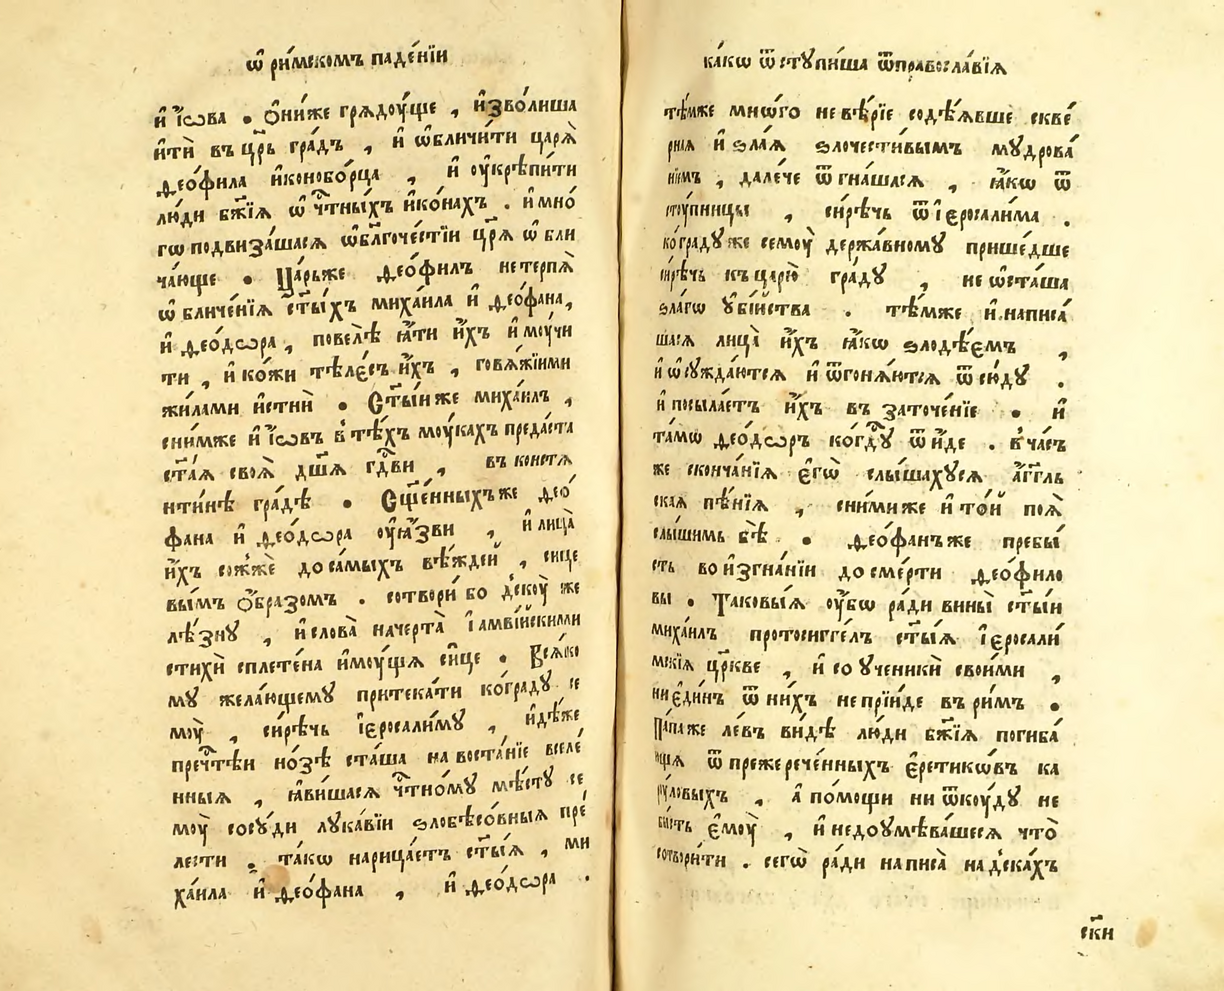 ѿ ри́мскомъ паде́нїи
и҆ і҆́ѡва . ѻ҆ни́же грѧдоу́ще , и҆зво́лиша
и҆тѝ въ цр҃ь гра́дъ , и҆ ѡ҆бличи́ти царѧ̀
ѳео́фила и҆конобо́рца , и҆ оу҆крѣпи́ти
лю́ди бж҃їѧ ѡ҆ чтⷭ҇ны́хъ и҆ко́нахъ . и҆ мно́
гѡ подвиза́шасѧ ѡ҆ бл҃гоче́стїи цр҃ѧ ѡ҆бли
ча́юще . Ца́рьже ѳео́филъ нетерпѧ̀
ѡ҆бличе́нїѧ ст҃ы́хъ миха́ила и҆ ѳео́фана,
и҆ ѳео́дѡра , повелѣ̀ ꙗ҆́ти и҆́хъ и҆ моу́чи
ти , и҆ ко́жи тѣле́съ и҆́хъ , говѧ́жїими
жи́лами и҆стнѝ . Ст҃ы́йже миха́илъ ,
сни́мже и҆ і҆́ѡвъ в̾ тѣ́хъ моу́кахъ преда́ста
ст҃а́ѧ своѧ̀ дш҃а гдⷭ҇ви , въ констѧ
нти́нѣ гра́дѣ . Сщ҃е́нныхъже ѳео́
фана и҆ ѳео́дѡра оу҆ꙗ҆зви , и҆ лица̀
и҆́хъ со́жже до са́мыхъ вѣ́ждей , сице
вы́мъ ѻ҆́бразомъ . сотвори́ бо дскоу̀ же
лѣ́зну , и҆ слова̀ начерта̀ і҆амві́йскими
стихѝ сплете́на и҆моу́щѧ си́це . Всѧ́ко
му жела́ющему притека́ти ко гра́ду се
моу̀ , си́рѣчь і҆еросали́му , и҆дѣ́же
пречтⷭ҇ѣи но́зѣ ста́ша на воста́нїе вселе́
нныѧ , ꙗ҆ви́шасѧ чтⷭ҇но́му мѣ́сту се
моу̀ сосу́ди лука́вїи ѕлобѣсо́вныѧ пре́
лести . та́кѡ нарица́етъ ст҃ы́ѧ , ми
ха́ила и҆ ѳео́фана , и҆ ѳео́дѡра .
ка́кѡ ѿступи́ша ѿ правосла́вїѧ
тѣ́мже мно́го невѣ́рїе содѣ́ѧвше скве́
рнаѧ и҆ ѕла́ѧ ѕлочести́вымъ мудрова́
нїемъ , дале́че ѿгна́шасѧ , ꙗ҆́кѡ ѿ
сту́пницы , си́рѣчь ѿ і҆еросали́ма .
ко гра́ду же семоу̀ держа́вному прише́дше
си́рѣчь къ царю̀ гра́ду , не ѡ҆ста́ша
ѕла́гѡ ᲂу҆бі́йства . тѣ́мже и҆ написа́
шасѧ лица̀ и҆́хъ ꙗ҆́кѡ ѕлодѣ́емъ ,
и҆ ѡ҆сужда́ютсѧ и҆ ѿгонѧ́ютсѧ ѿсю́ду .
и҆ посыла́етъ и҆́хъ въ заточе́нїе . и҆
та́мѡ ѳео́дѡръ ко гдⷭ҇у ѿи́де . в̾ ча́съ
же сконча́нїѧ є҆гѡ̀ слы́шахусѧ а҆́гг҃ль
скаѧ пѣ́нїѧ , сни́миже и҆ то́й поѧ̀
слы́шимъ бѣ̀ . ѳео́фанъже пребы́
сть во и҆згна́нїи до сме́рти ѳео́фило
вы . Таковы́ѧ оу҆́бѡ ра́ди вины̀ ст҃ы́и
миха́илъ протосигге́лъ ст҃ы́ѧ і҆еросали́
мскїѧ цр҃кве , и҆ со ученикѝ свои́ми ,
ни є҆ди́нъ ѿ ни́хъ непрїи́де въ ри́мъ .
Па́паже ле́въ ви́дѣ лю́ди бж҃їѧ погиба́
ющѧ ѿ прежерече́нныхъ є҆ретикѡ́въ ка
ру́ловыхъ , а҆ по́мощи ни ѿкоу́ду не
бы́сть є҆моу̀ , и҆ недоумѣва́шесѧ что̀
сотвори́ти . сегѡ̀ ра́ди написа̀ на дска́хъ
ск҃и